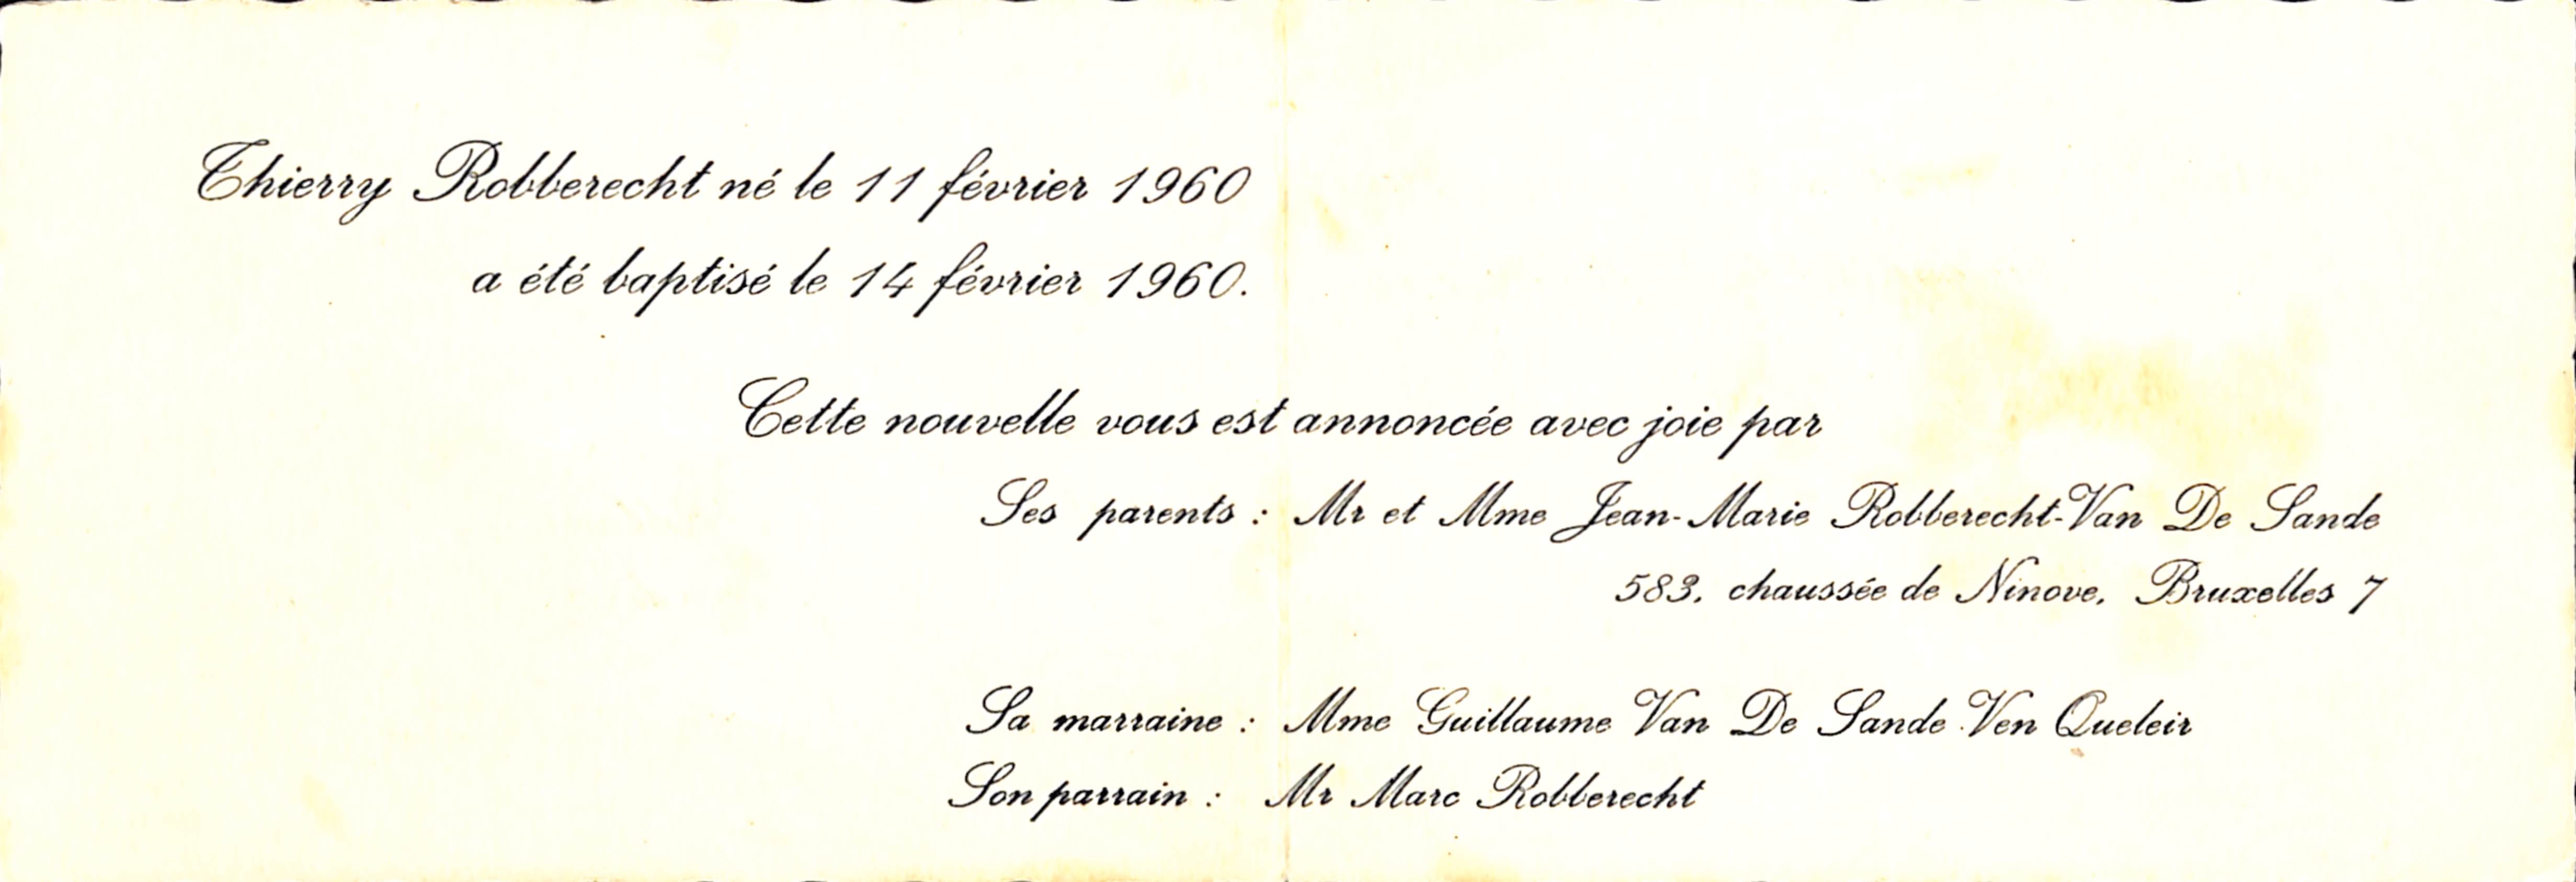 Thierry Robberecht né le 11 février 1960
a été baptisé le 14 février 1960.
Cette nouvelle vous est annoncée avec joie par
Ses parents : Mr et Mme Jean-Marie Robberecht-Van De Sande
583, chaussée de Ninove, Bruxelles 7
Sa marraine : Mme Guillaume Van De Sande-Ven Queleir
Son parrain : Mr Marc Robberecht